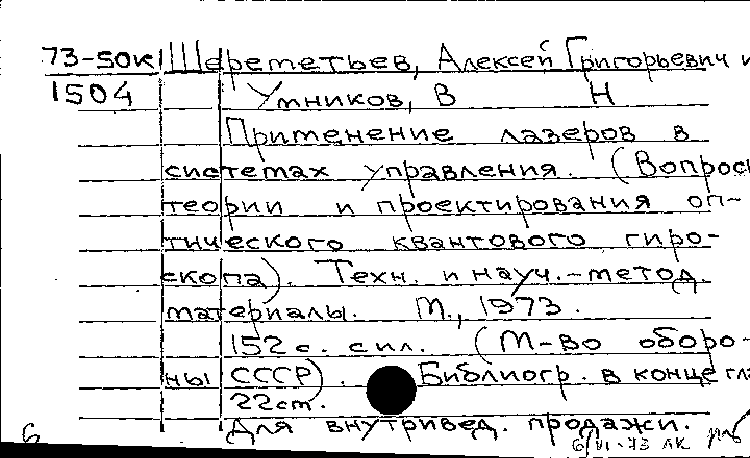 73-50к Шереметьев, Алексей Григорьевич и
1504 Умников, В Н
Применение лазеров в
системах управления. (Вопросы
теории и проектирования оп-
тического квантового гиро-
скопа). Техн. и науч.-метод.
материалы. М., 1973.
152 с. с ил. (М-во оборо-
ны СССР). Библиогр. в конце гл
22 см.
Для внутривед. продажи.
6 6/VI-73 ЛК